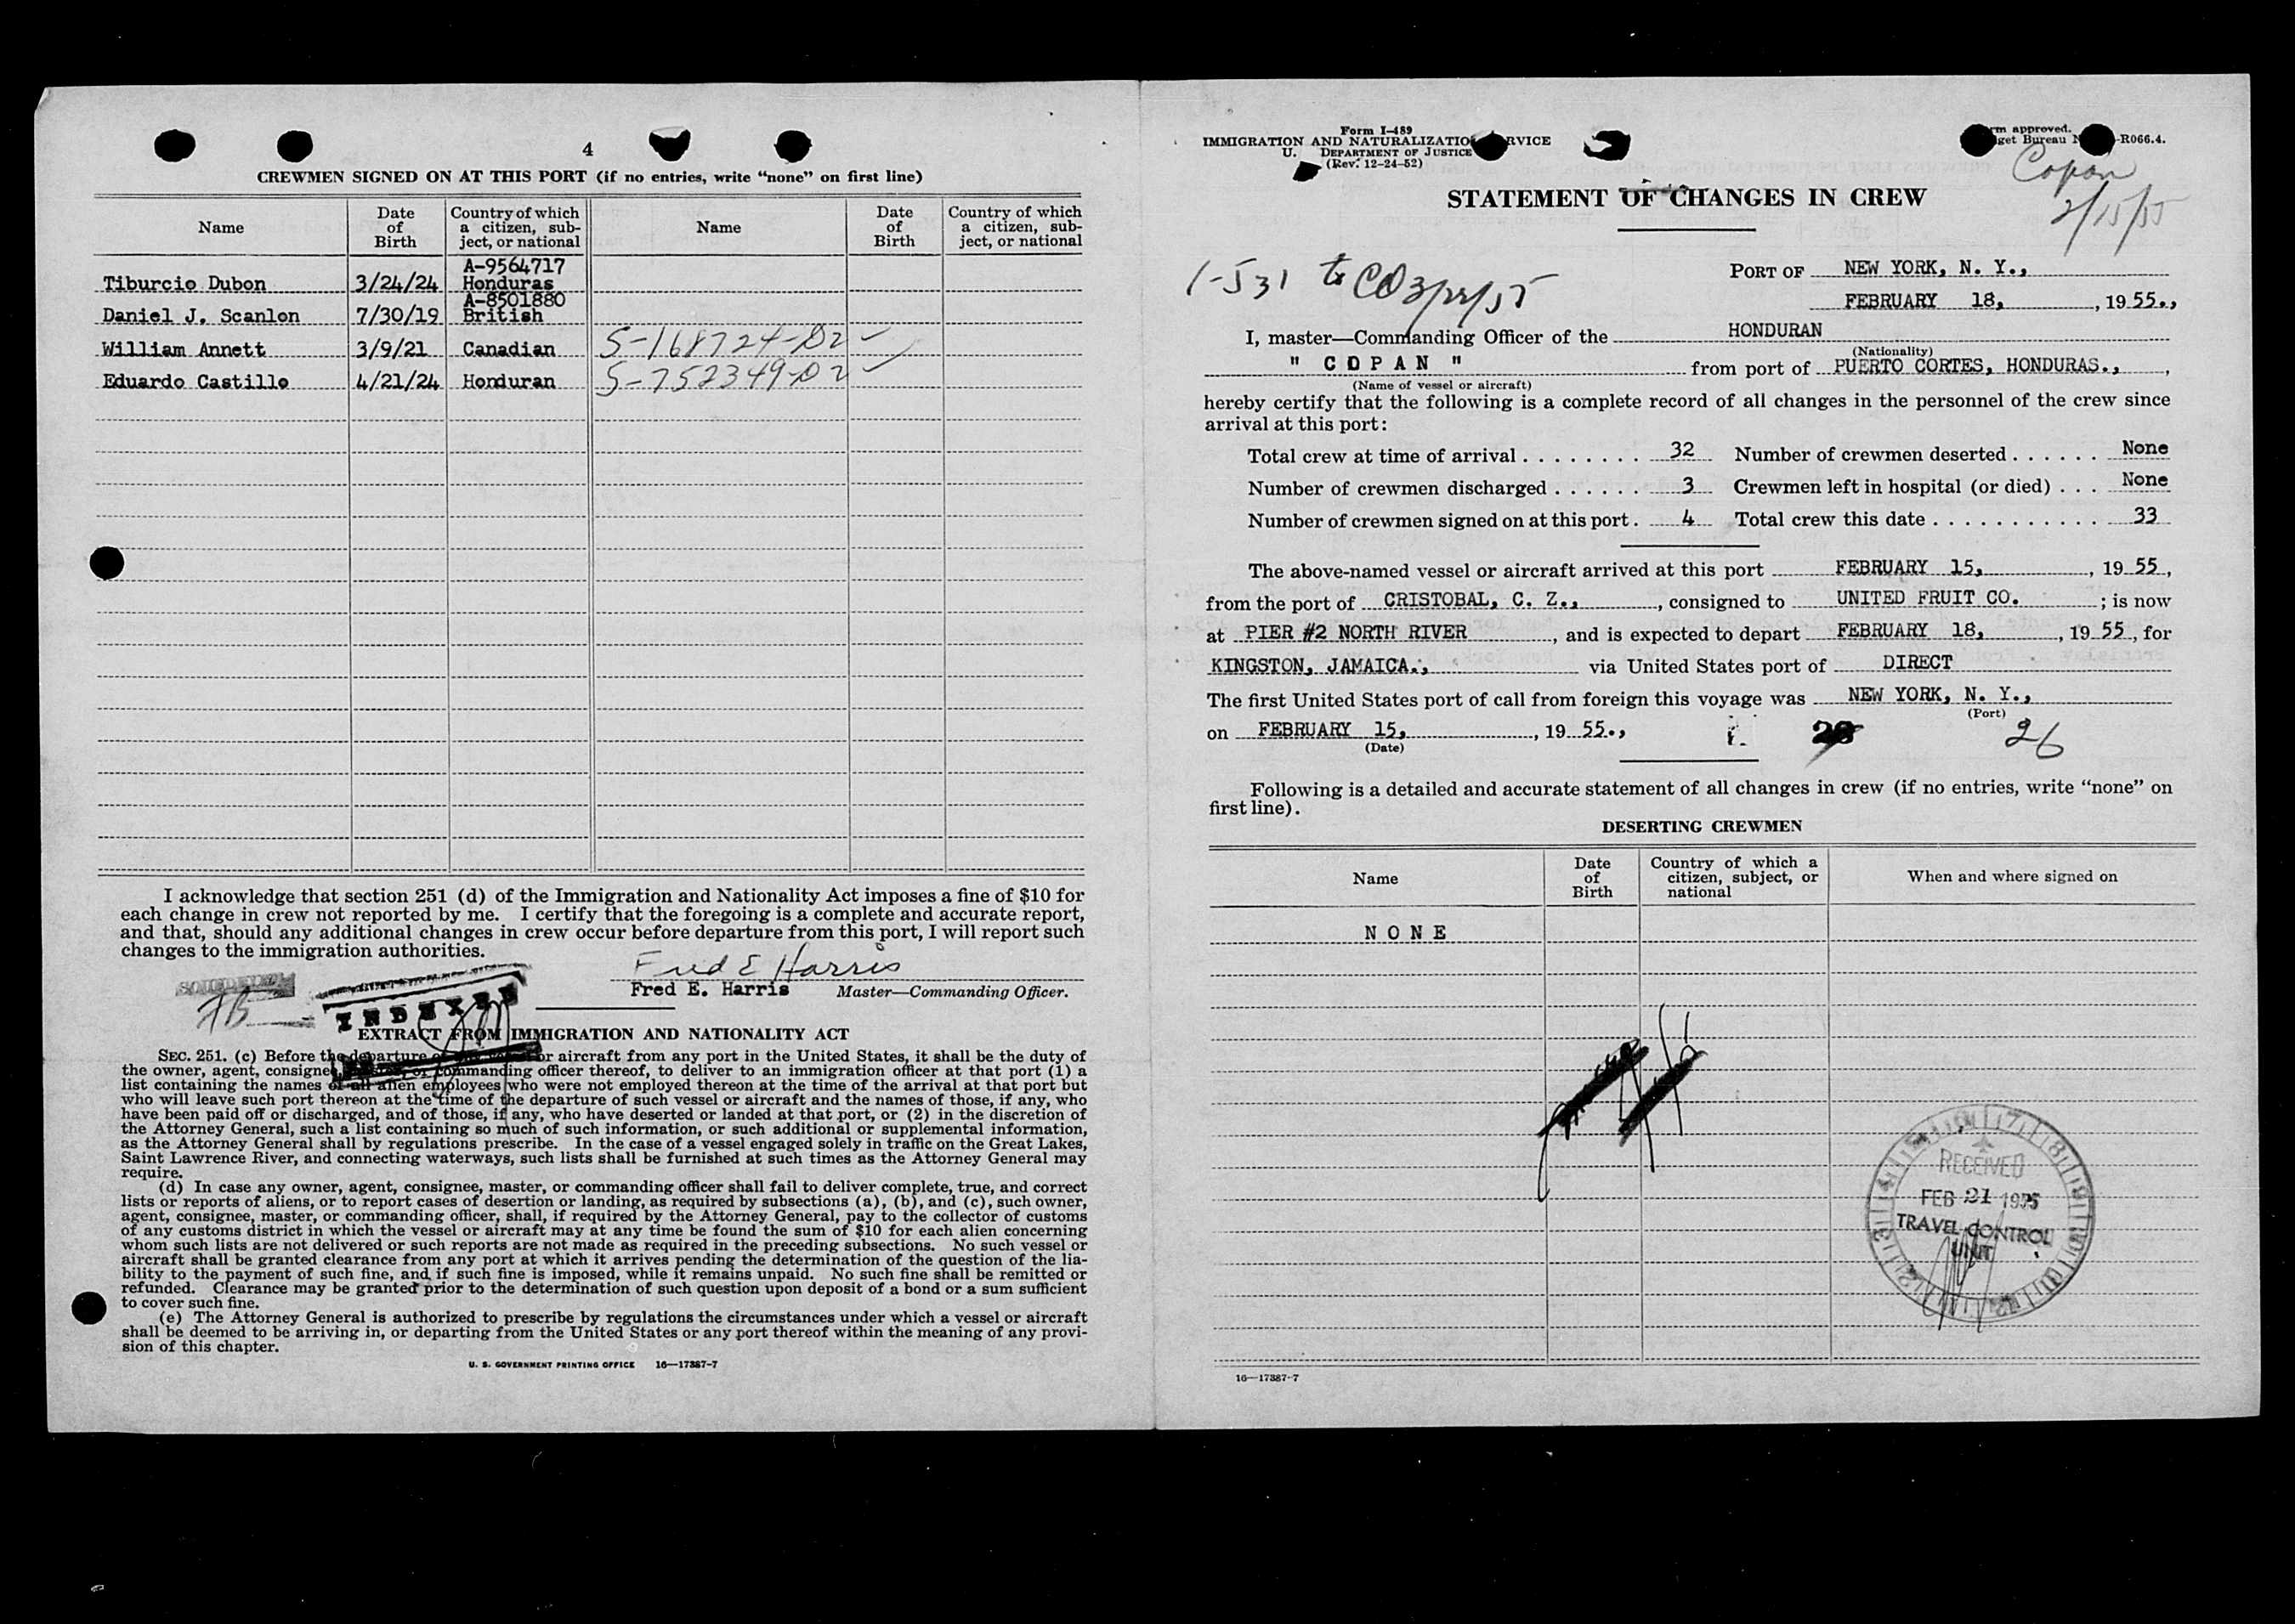 4
CREWMEN SIGNED ON AT THIS PORT (if no entries, write "none" on first line)
Name
Date of Birth
Country of which a citizen, subject, or national
Name
Date of Birth
Country of which a citizen, subject, or national
A-9564717
Tiburcio Dubon 3/24/24 Honduras
A-8501880
Daniel J. Scanlon 7/30/19 British
William Annett 3/9/21 Canadian S-168724-D2
Eduardo Castillo 4/21/24 Honduran S-752349-D2
I acknowledge that section 251 (d) of the Immigration and Nationality Act imposes a fine of $10 for
each change in crew not reported by me. I certify that the foregoing is a complete and accurate report,
and that, should any additional changes in crew occur before departure from this port, I will report such
changes to the immigration authorities.
Fred E Harris
Fred E. Harris Master—Commanding Officer.
INDEXED
EXTRACT FROM IMMIGRATION AND NATIONALITY ACT
SEC. 251. (c) Before the departure of any vessel or aircraft from any port in the United States, it shall be the duty of
the owner, agent, consignee, master, or commanding officer thereof, to deliver to an immigration officer at that port (1) a
list containing the names of all alien employees who were not employed thereon at the time of the arrival at that port but
who will leave such port thereon at the time of the departure of such vessel or aircraft and the names of those, if any, who
have been paid off or discharged, and of those, if any, who have deserted or landed at that port, or (2) in the discretion of
the Attorney General, such a list containing so much of such information, or such additional or supplemental information,
as the Attorney General shall by regulations prescribe. In the case of a vessel engaged solely in traffic on the Great Lakes,
Saint Lawrence River, and connecting waterways, such lists shall be furnished at such times as the Attorney General may
require.
(d) In case any owner, agent, consignee, master, or commanding officer shall fail to deliver complete, true, and correct
lists or reports of aliens, or to report cases of desertion or landing, as required by subsections (a), (b), and (c), such owner,
agent, consignee, master, or commanding officer, shall, if required by the Attorney General, pay to the collector of customs
of any customs district in which the vessel or aircraft may at any time be found the sum of $10 for each alien concerning
whom such lists are not delivered or such reports are not made as required in the preceding subsections. No such vessel or
aircraft shall be granted clearance from any port at which it arrives pending the determination of the question of the lia-
bility to the payment of such fine, and if such fine is imposed, while it remains unpaid. No such fine shall be remitted or
refunded. Clearance may be granted prior to the determination of such question upon deposit of a bond or a sum sufficient
to cover such fine.
(e) The Attorney General is authorized to prescribe by regulations the circumstances under which a vessel or aircraft
shall be deemed to be arriving in, or departing from the United States or any port thereof within the meaning of any provi-
sion of this chapter.
U. S. GOVERNMENT PRINTING OFFICE 16—17387-7
Form I-489
IMMIGRATION AND NATURALIZATIO RVICE
U. DEPARTMENT OF JUSTICE
(Rev. 12-24-52)
rm approved.
get Bureau -R066.4.
Copan
2/15/55
STATEMENT OF CHANGES IN CREW
1-531 to CO 3/22/55
PORT OF NEW YORK, N. Y.,
FEBRUARY 18, , 19 55.,
I, master—Commanding Officer of the HONDURAN
(Nationality)
" C O P A N " from port of PUERTO CORTES, HONDURAS., ,
(Name of vessel or aircraft)
hereby certify that the following is a complete record of all changes in the personnel of the crew since
arrival at this port:
Total crew at time of arrival . . . . . . . . 32 Number of crewmen deserted . . . . . . None
Number of crewmen discharged . . . . . . 3 Crewmen left in hospital (or died) . . . None
Number of crewmen signed on at this port . 4 Total crew this date . . . . . . . . . . . 33
The above-named vessel or aircraft arrived at this port FEBRUARY 15, , 19 55 ,
from the port of CRISTOBAL, C. Z., , consigned to UNITED FRUIT CO. ; is now
at PIER #2 NORTH RIVER , and is expected to depart FEBRUARY 18, , 19 55 , for
KINGSTON, JAMAICA., via United States port of DIRECT
The first United States port of call from foreign this voyage was NEW YORK, N. Y.,
(Port)
on FEBRUARY 15, , 19 55.,
(Date)
26
Following is a detailed and accurate statement of all changes in crew (if no entries, write "none" on
first line).
DESERTING CREWMEN
Name
Date of Birth
Country of which a citizen, subject, or national
When and where signed on
N O N E
RECEIVED
FEB 21 1955
TRAVEL CONTROL
UNIT
16—17387-7